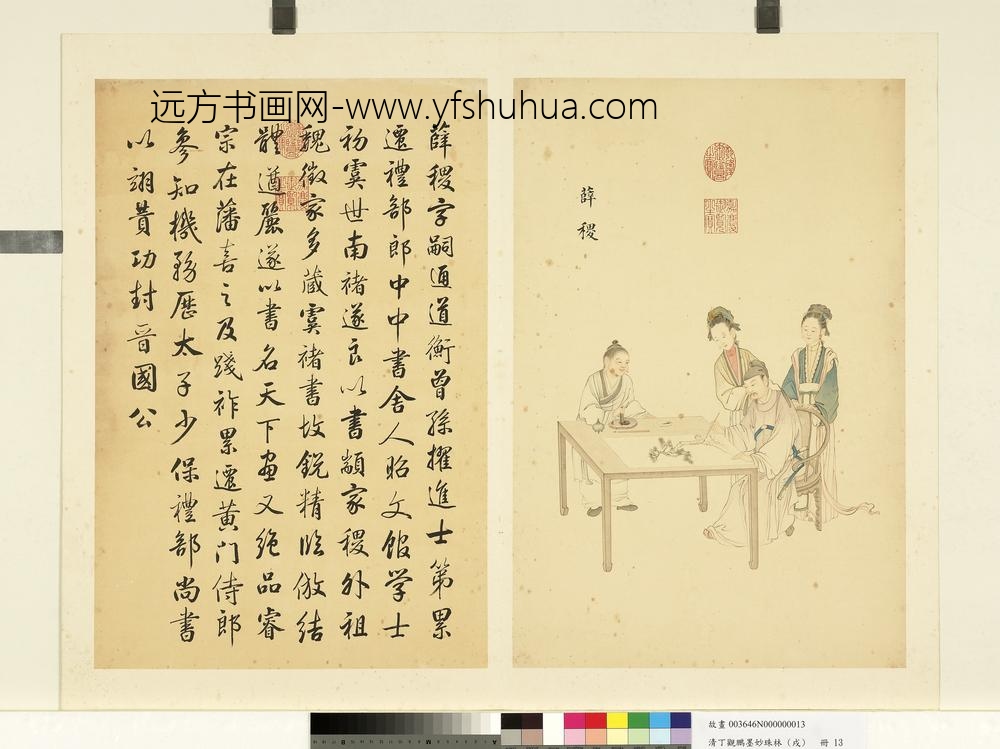 远方书画网-www.yfshuhua.com
薛稷
薛稷字嗣通道衡曾孫擢進士第累
遷禮部郎中中書舍人昭文館学士
初虞世南褚遂良以書顓家稷外祖
魏徵家多蔵虞褚書故銳精臨倣結
體遒麗遂以書名天下画又絶品睿
宗在藩喜之及踐祚累遷黄门侍郎
參知機務歷太子少保禮部尚書
以翊賛功封晉國公
故畫 003646N000000013
清丁觀鵬墨妙珠林（戌） 冊 13